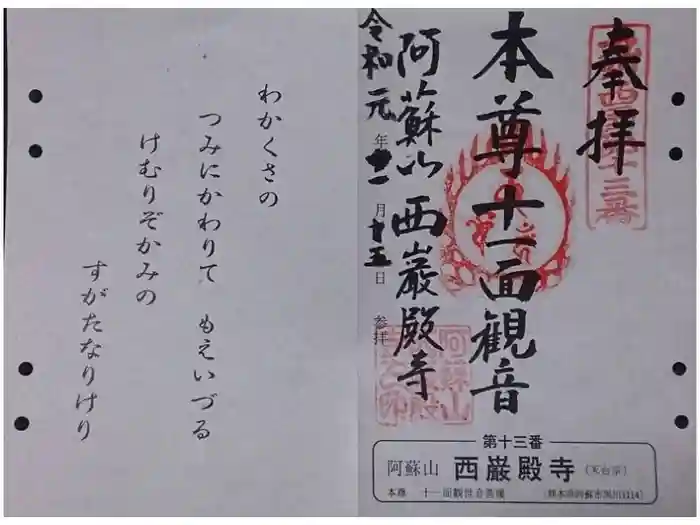 奉拝
本尊十一面観音
阿蘇山 西巌殿寺
令和元年十一月十五日 参拝
わかくさの
つみにかわりて もえいづる
けむりぞかみの
すがたなりけり
第十三番
阿蘇山 西巌殿寺 (天台宗)
本尊 十一面観世音菩薩